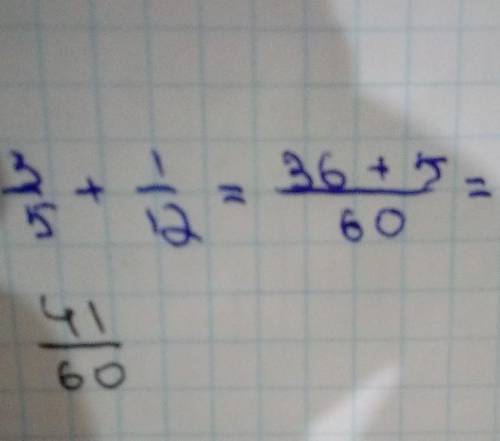 3/5 + 1/12 = (36 + 5)/60 =
41/60